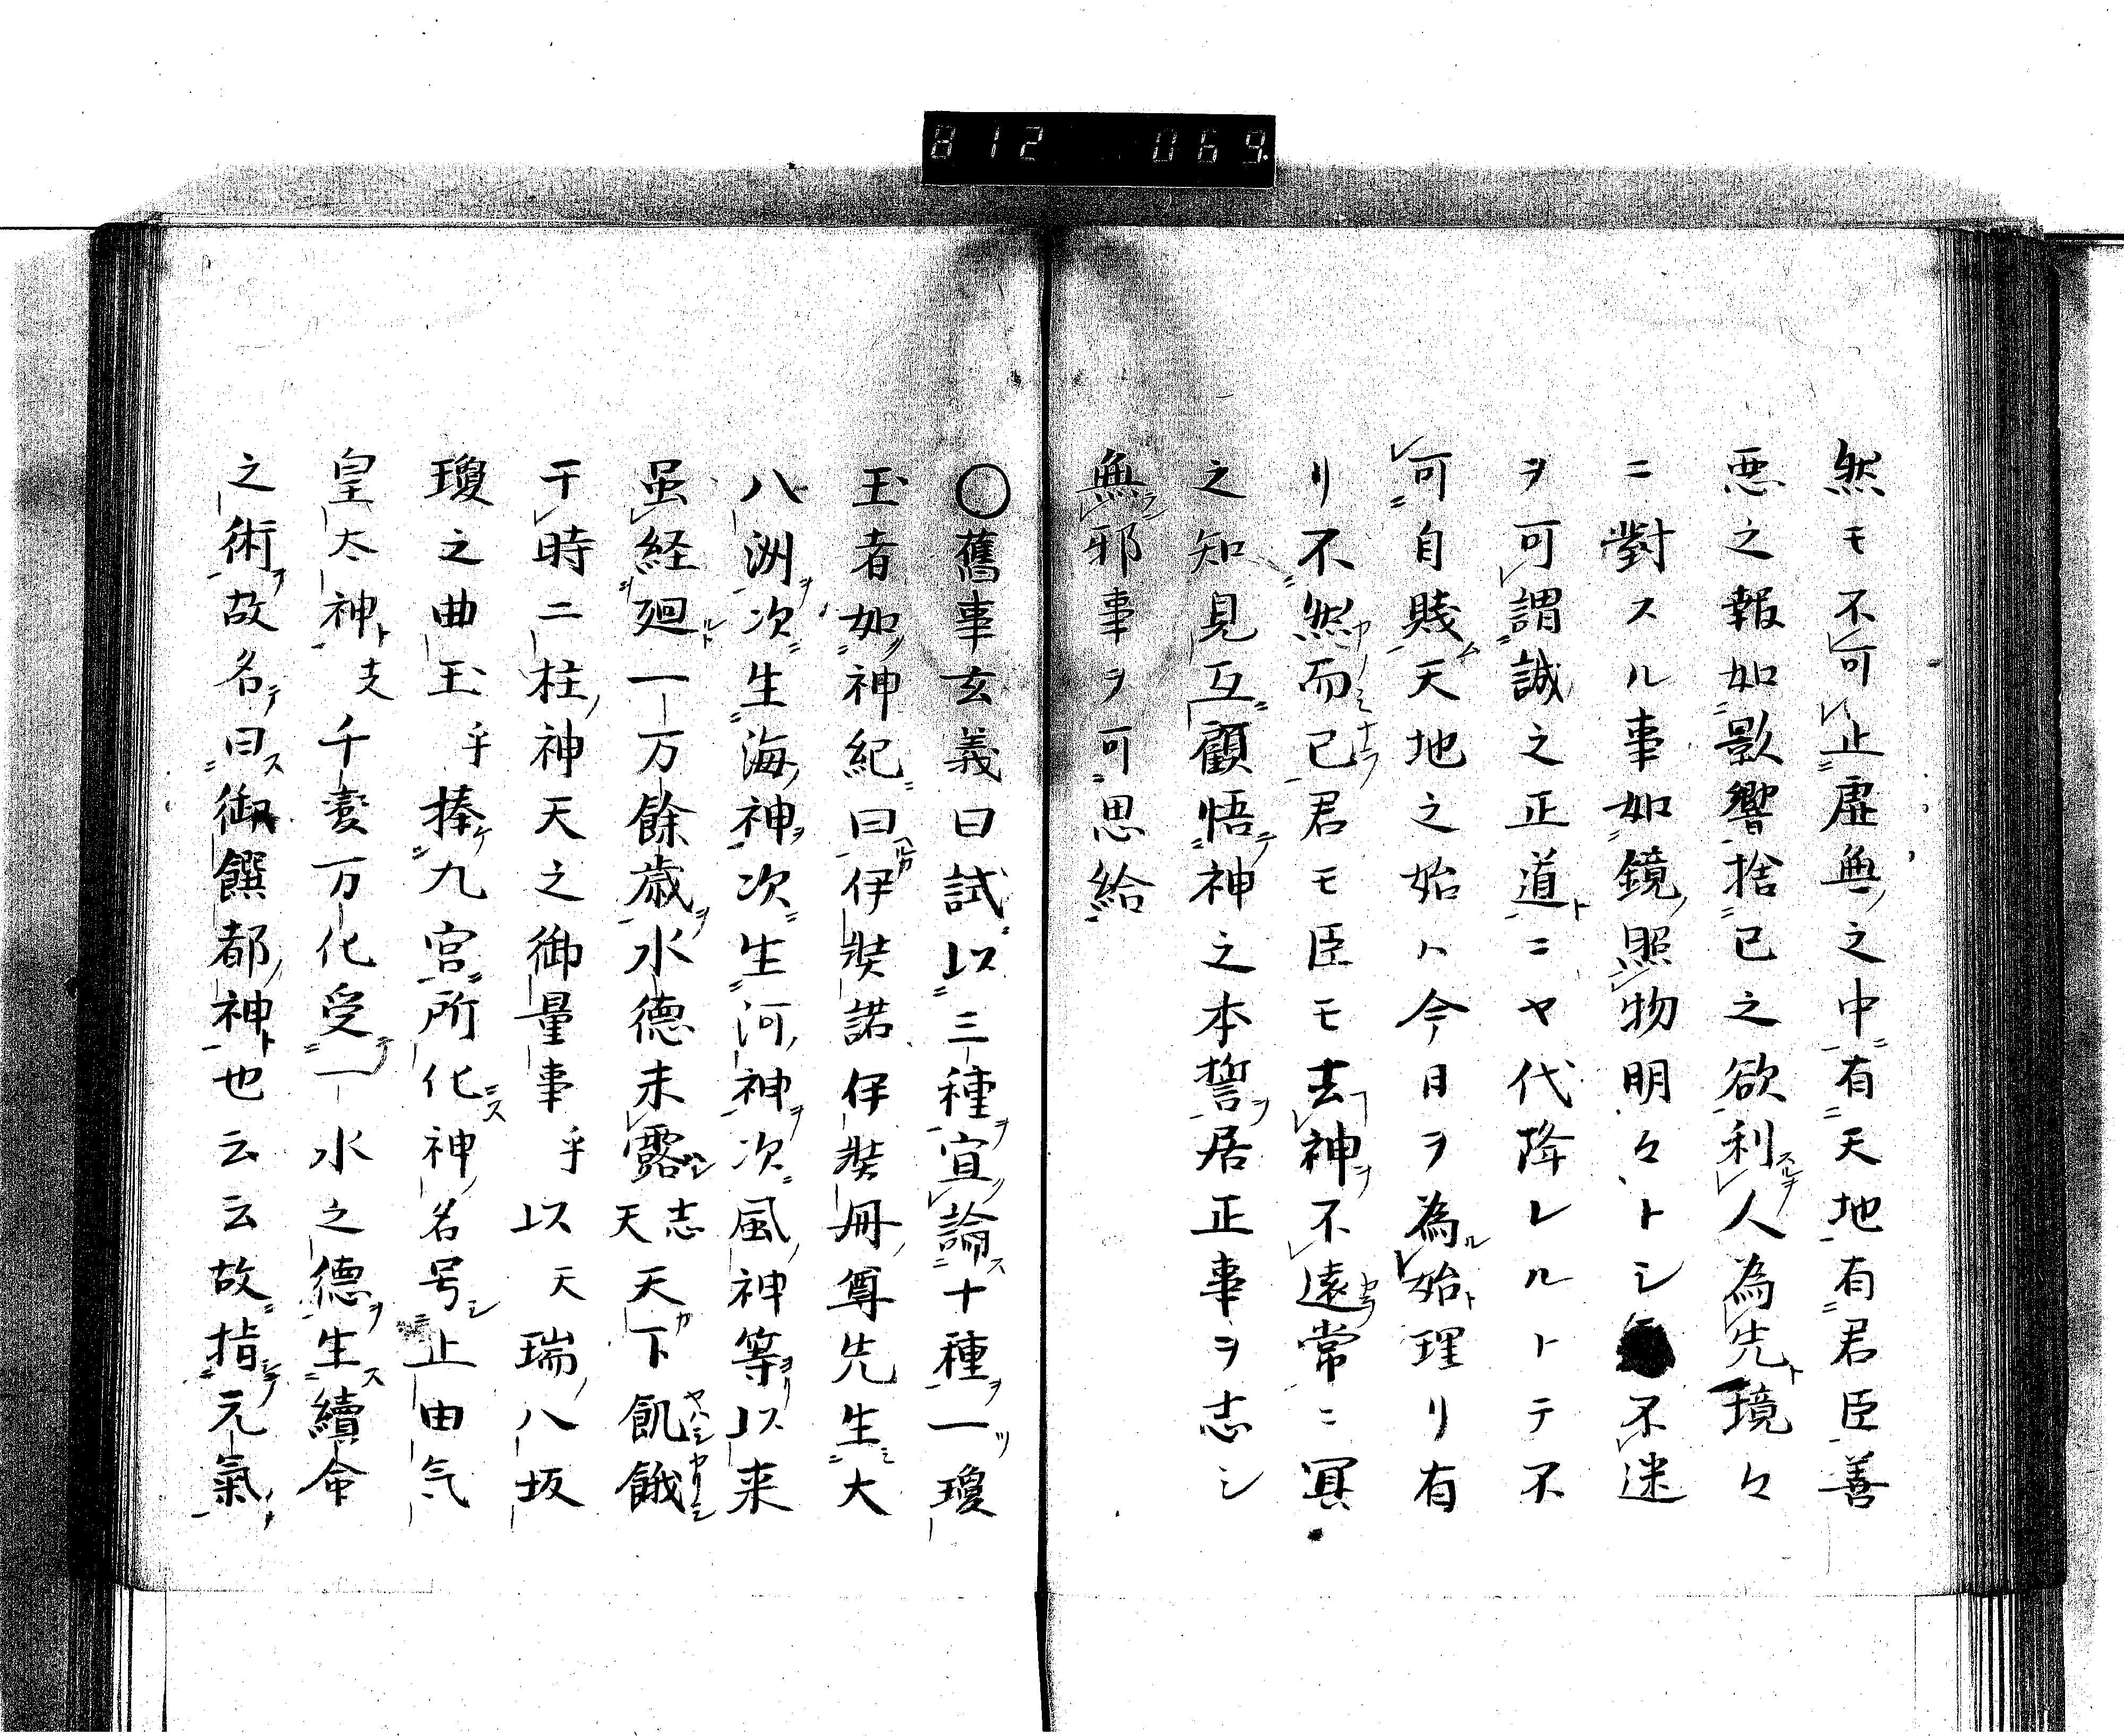 812 069.
然モ不可止虚無之中有天地有君臣善
悪之報如影響捨己之欲利人為先境々
ニ對スル事如鏡照物明々トシ不迷
ヲ可謂誠之正道ニヤ代降レルトテ不
可自賤天地之始ハ今日ヲ為始理リ有
リ不然而已君モ臣モ去神不遠常ニ冥
之知見互顧悟神之本誓居正事ヲ志シ
無邪事ヲ可思給
〇舊事玄義曰試以三種宣論十種一瓊
玉者如神紀曰伊奘諾伊奘冊尊先生大
八洲次生海神次生河神次風神等以来
虽経廻一万餘歳水德未露志天天下飢餓
于時二柱神天之御量事乎以天瑞八坂
瓊之曲玉乎捧九宮所化神名号止由气
皇太神支千変万化受一水之德生續命
之術故名曰御饌都神也云云故指元氣